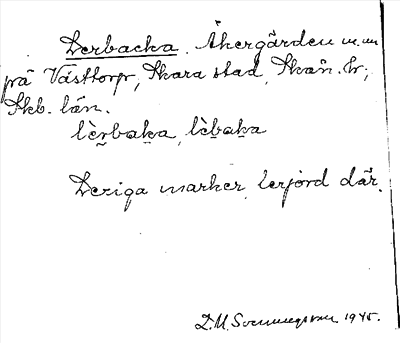 Lerbacka. Åkergärden m.m.
på Västtorp, Skara stad, Skån. hr;
Skb. län.
lèrbaka, lèbaka
Leriga marker, lerjord där.
D.M. Svenningsson 1945.